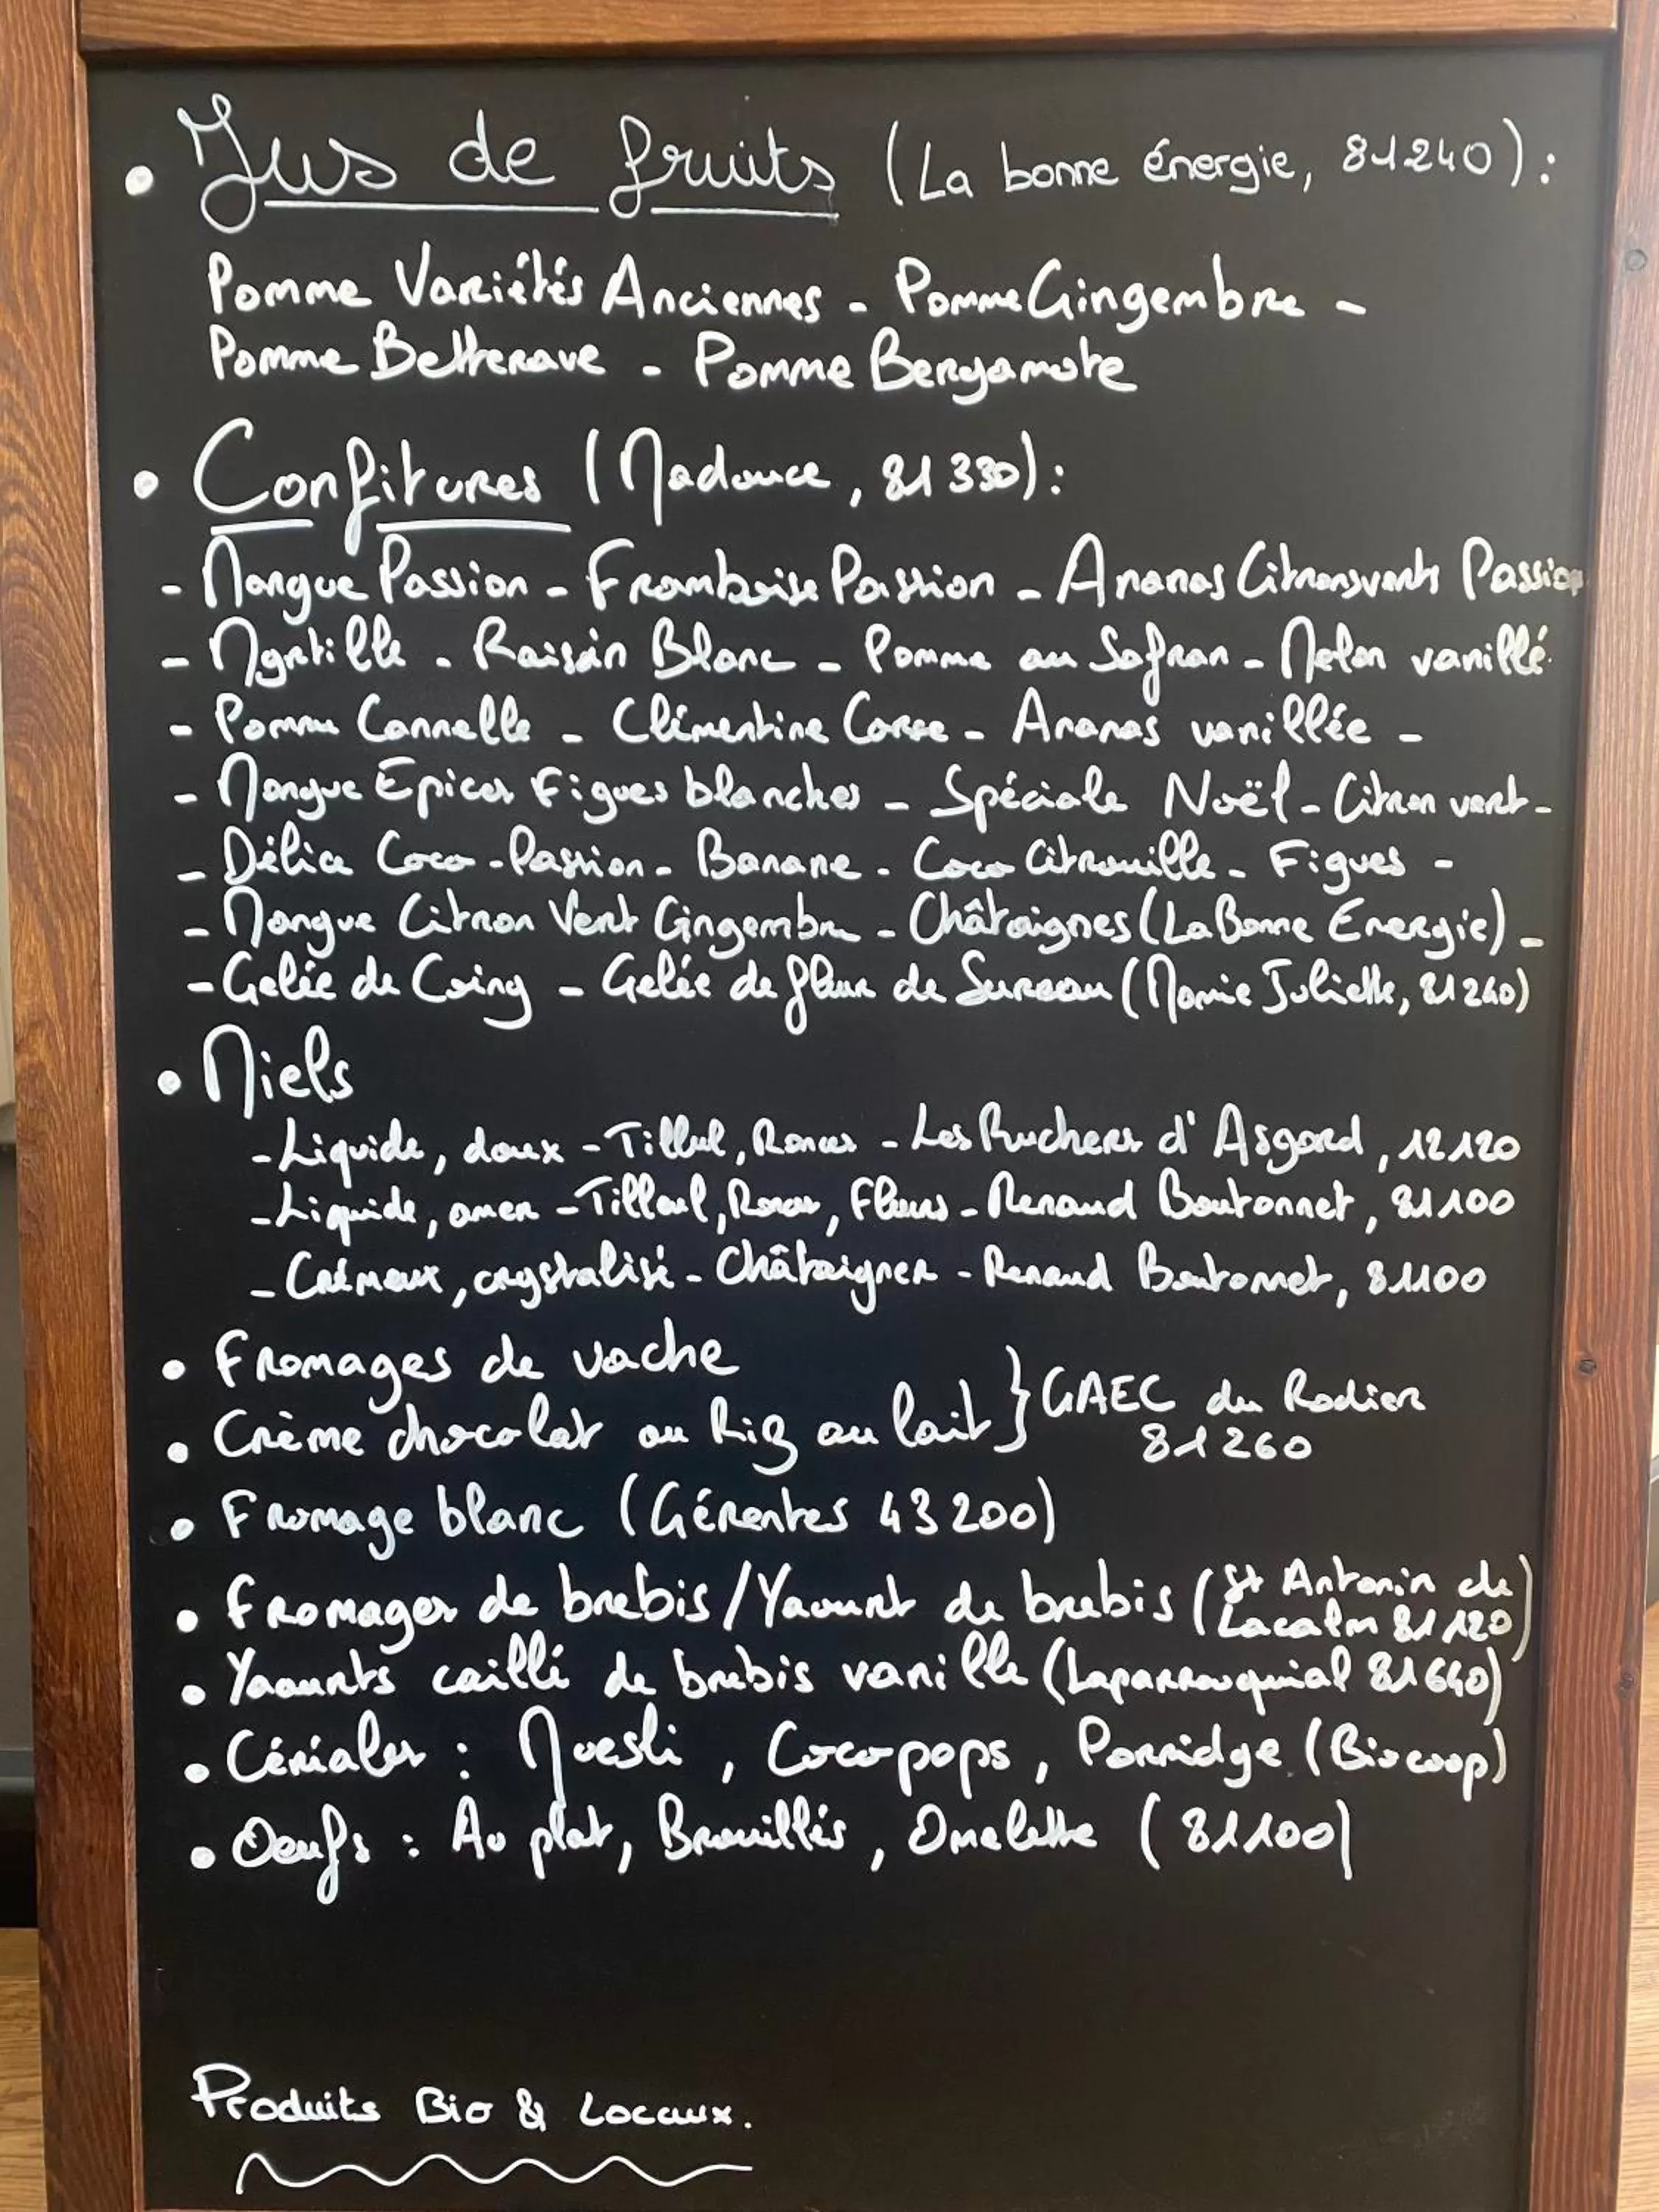 • Jus de fruits (La bonne énergie, 81240) :
Pomme Variétés Anciennes - Pomme Gingembre -
Pomme Betterave - Pomme Bergamote
• Confitures (Madouce, 81330) :
- Mangue Passion - Framboise Passion - Ananas Citrons verts Passion
- Myrtille - Raisin Blanc - Pomme au Safran - Melon vanillé
- Pomme Cannelle - Clémentine Corse - Ananas vanillée -
- Mangue Epices Figues blanches - Spéciale Noël - Citron vert -
- Délice Coco - Passion - Banane - Coco Citrouille - Figues -
- Mangue Citron Vert Gingembre - Châtaignes (La Bonne Energie) -
- Gelée de Coing - Gelée de fleur de Sureau (Mamie Juliette, 81240)
• Miels
- Liquide, doux - Tilleul, Ronces - Les Ruchers d'Asgard, 12120
- Liquide, amer - Tilleul, Ronces, Fleurs - Renaud Boutonnet, 81100
- Crémeux, crystalisé - Châtaigner - Renaud Boutonnet, 81100
• Fromages de vache
• Crème chocolat ou Riz au lait } GAEC du Rodier
81260
• Fromage blanc (Gérentes 43200)
• Fromages de brebis / Yaourt de brebis (St Antonin de
Lacalm 81120)
• Yaourts caillé de brebis vanille (Laparrouquial 81640)
• Céréales : Muesli, Cocopops, Porridge (Biocoop)
• Oeufs : Au plat, Brouillés, Omelette (81100)
Produits Bio & Locaux.